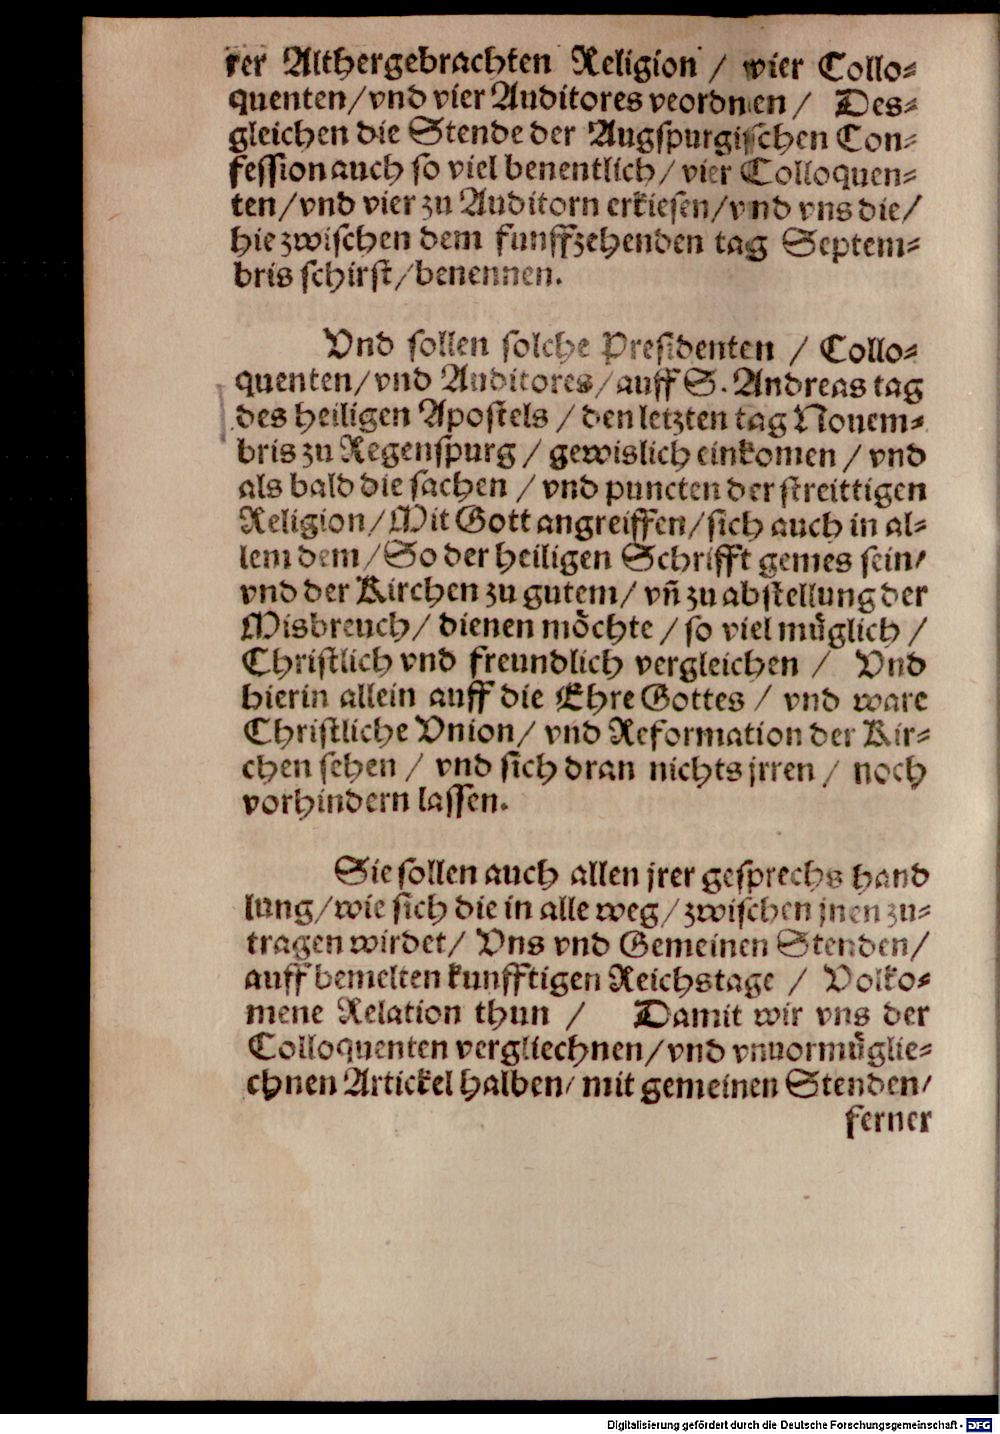 rer Althergebrachten Religion / wier Collo⸗
quenten/vnd vier Auditores veordnen / Des⸗
gleichen die Stende der Augspurgisschen Con⸗
fession auch so viel benentlich/ vier Colloquen⸗
ten/vnd vier zu Auditorn erkiesen/vnd vns die/
hie zwischen dem funffzehenden tag Septem⸗
bris schirst/benennen.
Vnd sollen solche Presidenten / Collo⸗
quenten/vnd Auditores/auff S. Andreas tag
des heiligen Apostels / den letzten tag Nouem⸗
bris zu Regenspurg / gewislich einkomen / vnd
als bald die sachen / vnd puncten der streittigen
Religion/Mit Gott angreiffen/sich auch in al⸗
lem dem/So der heiligen Schrifft gemes sein/
vnd der Kirchen zu gutem/ vñ zu abstellung der
Misbreuch/ dienen möchte / so viel müglich /
Christlich vnd freundlich vergleichen / Vnd
hierin allein auff die Ehre Gottes / vnd ware
Christliche Vnion/ vnd Reformation der Kir⸗
chen sehen / vnd sich dran nichts jrren / noch
vorhindern lassen.
Sie sollen auch allen jrer gesprechs hand
lung/wie sich die in alle weg/ zwischen jnen zu⸗
tragen wirdet/ Vns vnd Gemeinen Stenden/
auff bemelten kunfftigen Reichstage / Volko⸗
mene Relation thun / Damit wir vns der
Colloquenten vergliechnen/vnd vnuormüglie⸗
chnen Artickel halben/ mit gemeinen Stenden/
ferner
Digitalisierung gefördert durch die Deutsche Forschungsgemeinschaft - DFG